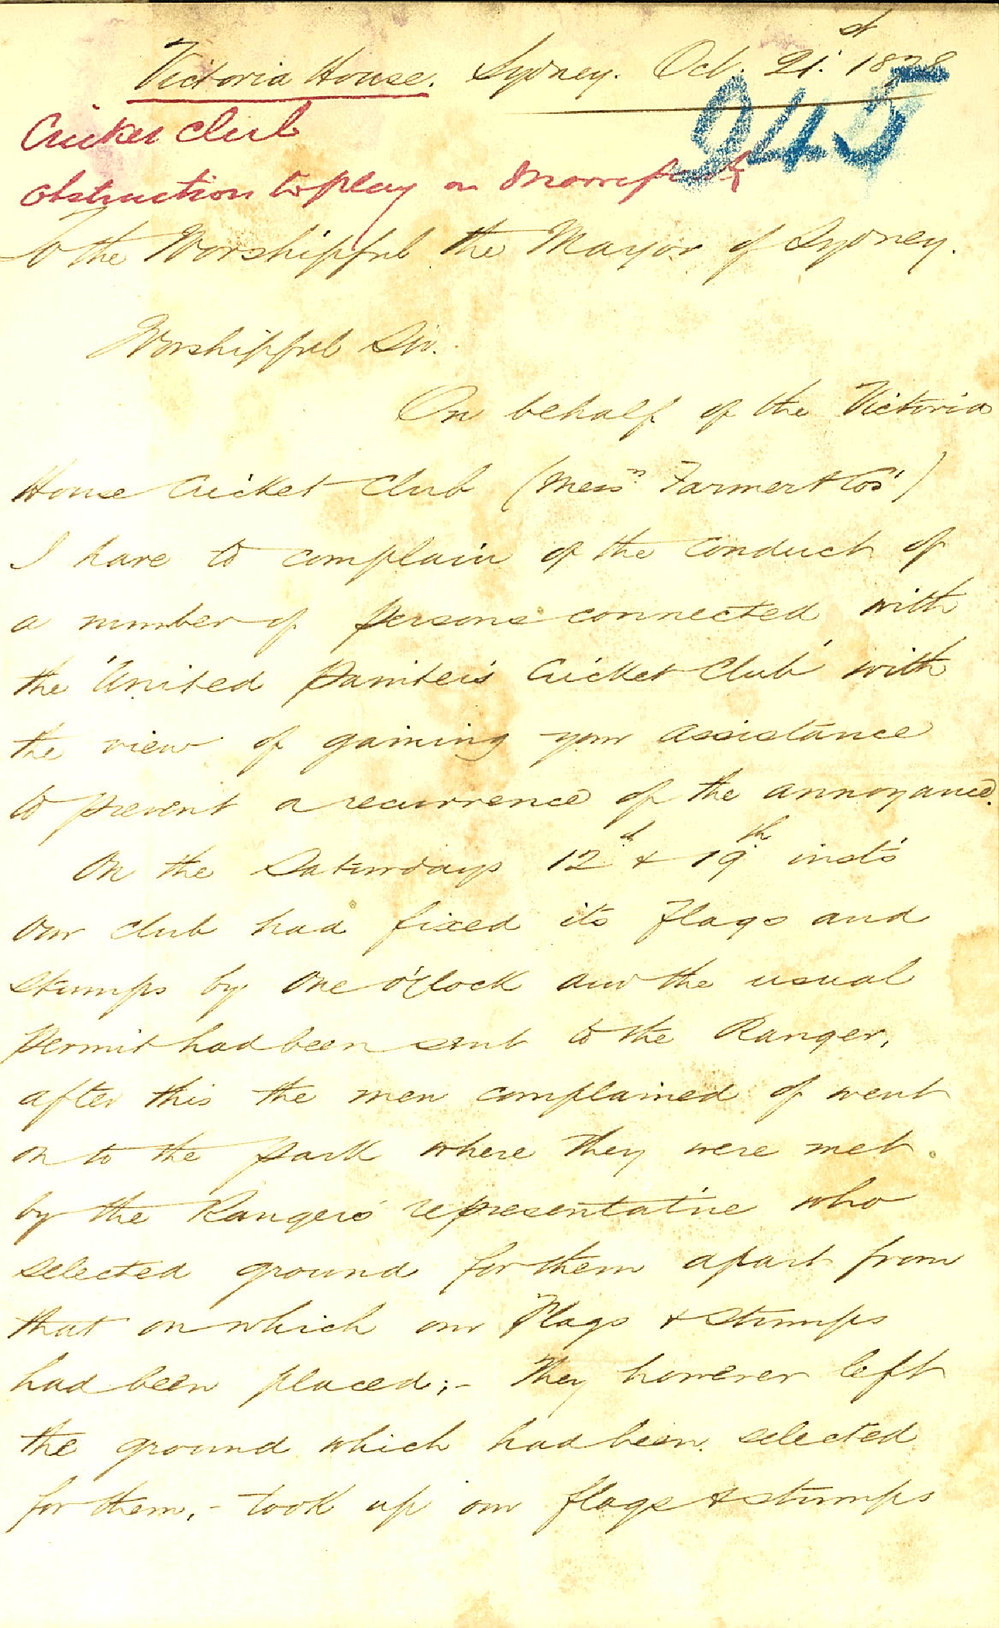 Victoria House. Sydney. Oct. 21st. 1878
945
Cricket Club
obstruction to play on Moore Park
To the Worshipful the Mayor of Sydney.
Worshipful Sir.
On behalf of the Victoria
House Cricket Club (Messrs Farmer & Cos')
I have to complain of the conduct of
a number of persons connected with
the 'United Painters Cricket Club' with
the view of gaining your assistance
to prevent a recurrence of the annoyance.
On the Saturdays 12th & 19th inst's
our club had fixed its flags and
stumps by one o'Clock and the usual
permit had been sent to the Ranger,
after this the men complained of went
on to the park where they were met.
by the Rangers representative who
selected ground for them apart from
that on which our Flags & Stumps
had been placed;- They however left
the ground which had been selected
for them,- took up our flags & stumps